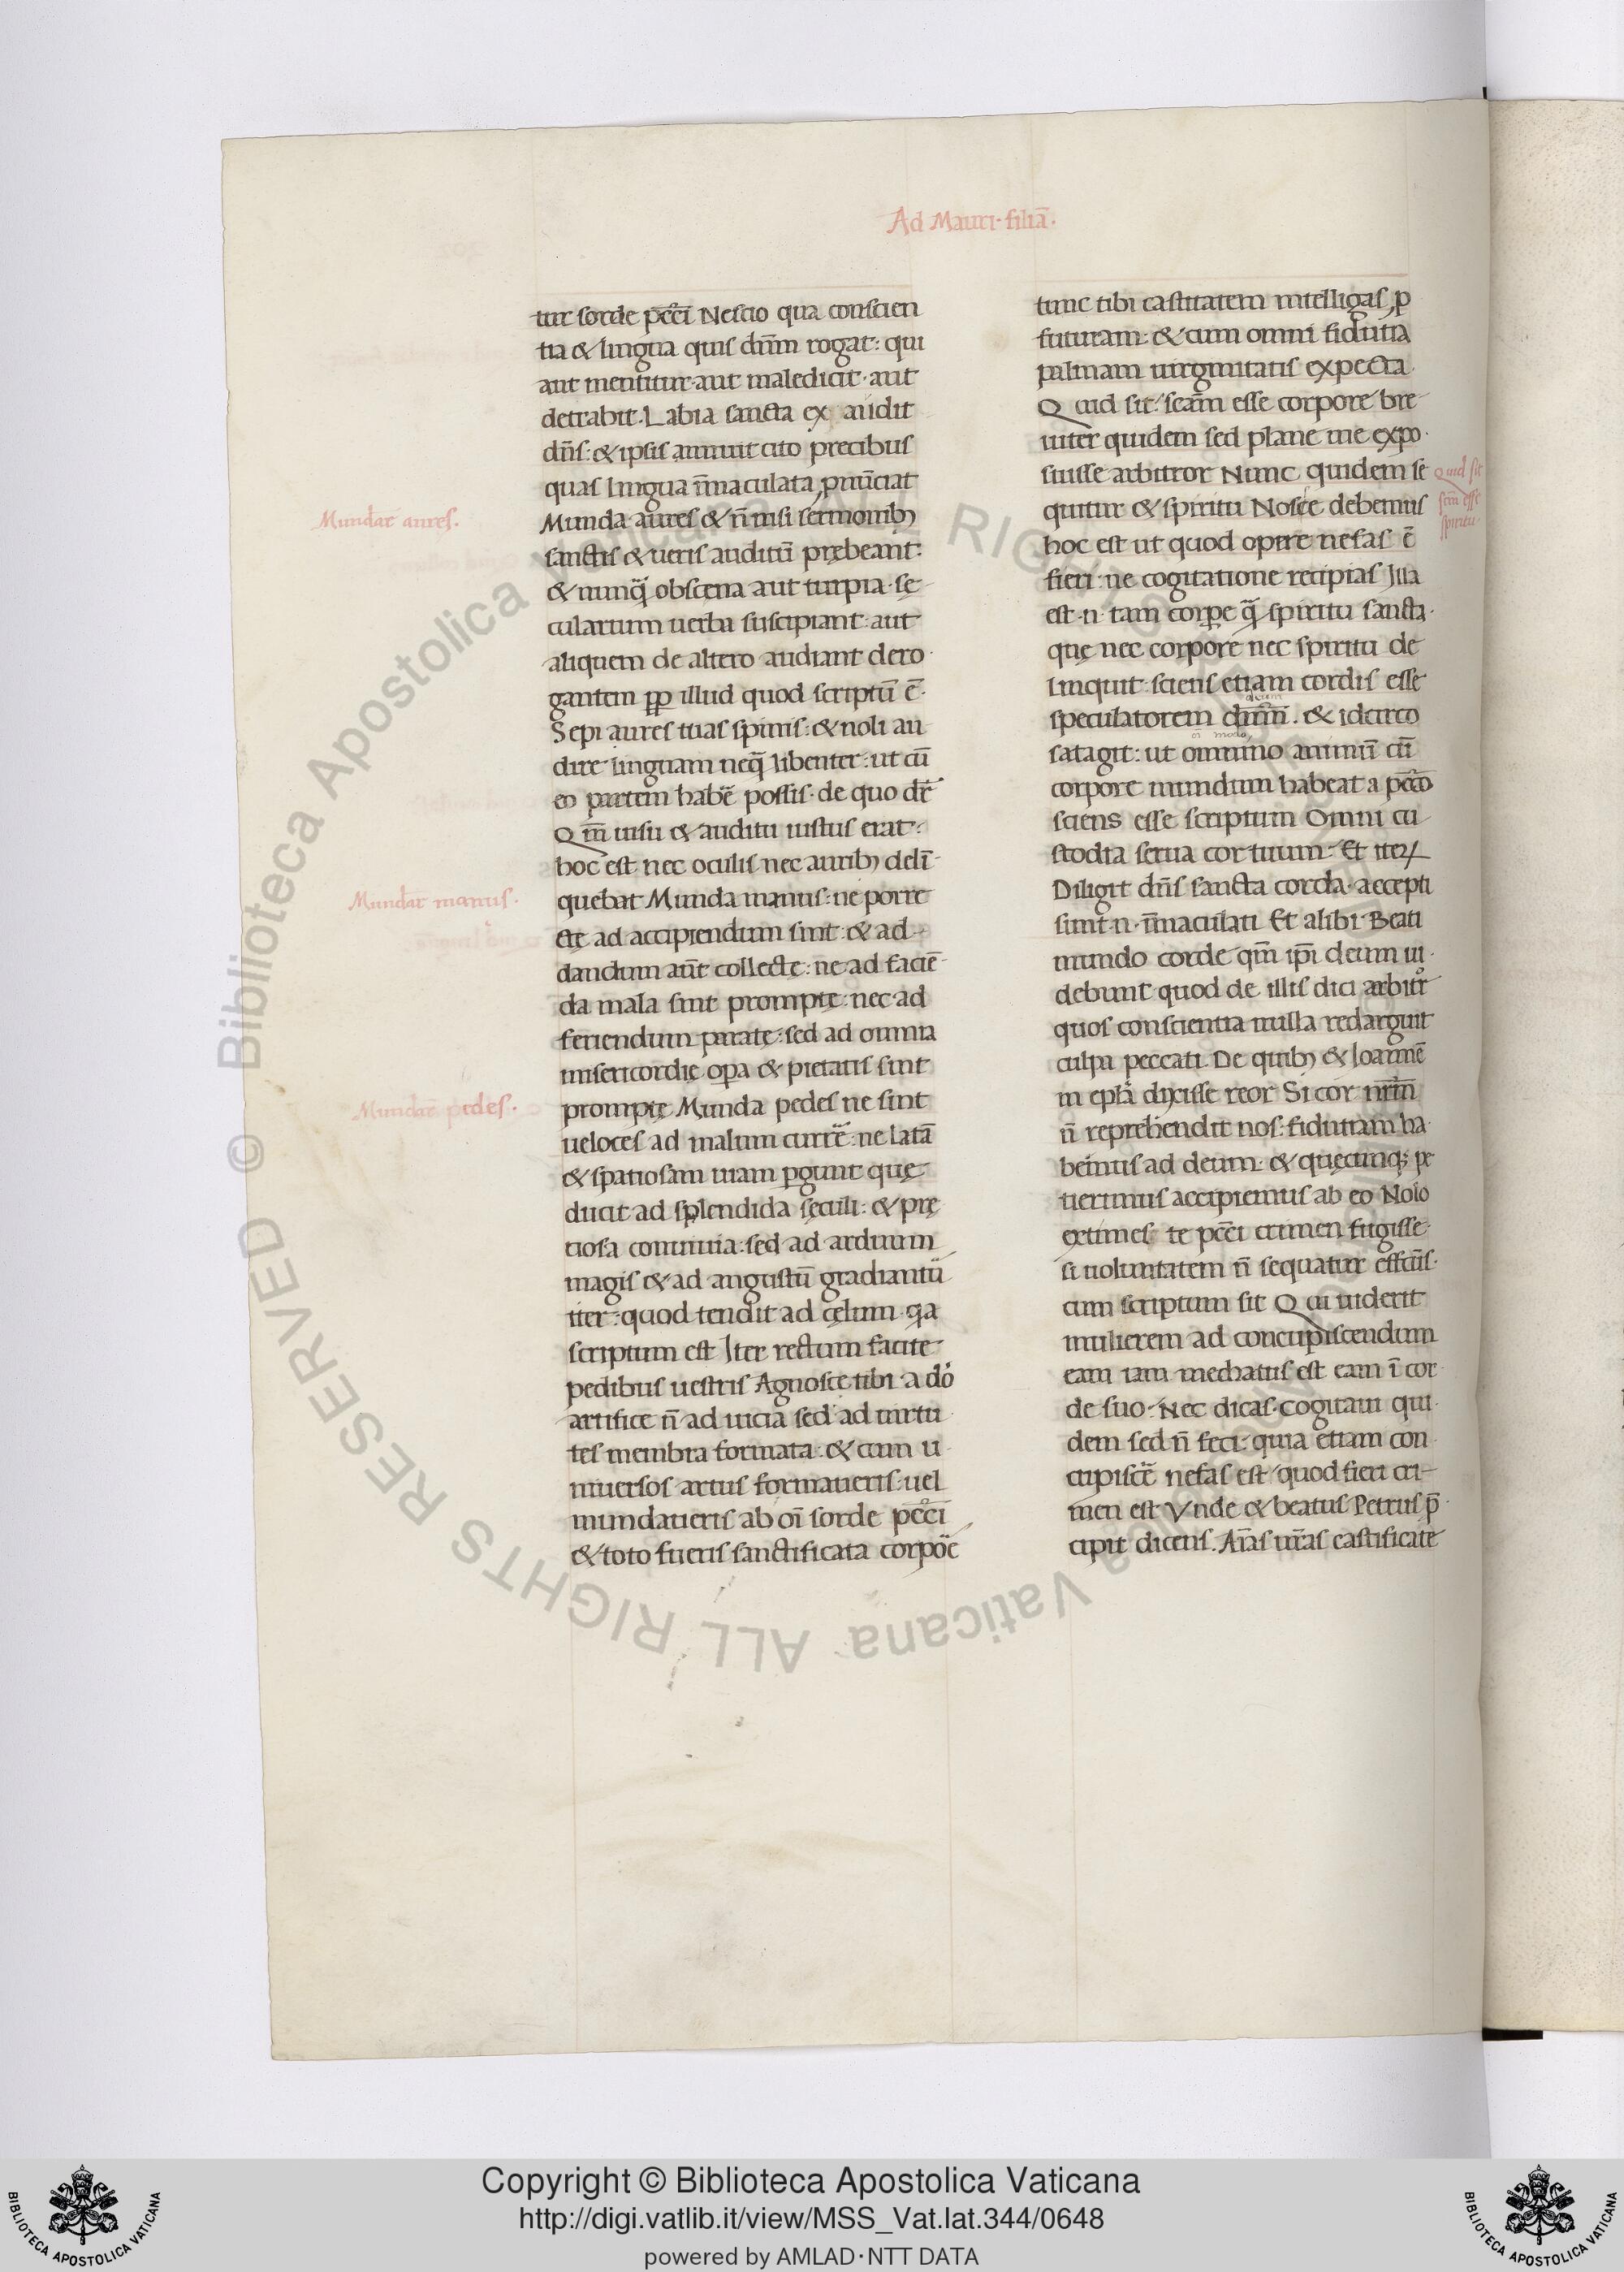 Ad Mauri·filiā·
tur sorde pcc̄i Nescio qua conscien
tia & lingua quis dn̄m rogat: qui
aut mentitur·aut maledicit·aut
detrahit. Labia sancta ex audit
dn̄s: & ipsis annuit cito precibus
quas lingua īmaculata ꝓnūciat
Mundar̄ aures.
Munda aures & n̄ nisi sermonibꝫ
sanctis & ueris auditū prębeant:
& nunq̄ obscena aut turpia·sę
cularium uerba suscipiant: aut
aliquem de altero audiant dero
gantem ꝓp illud quod scriptū ē·
Sepi aures tuas spinis: & noli au
dire linguam neq̄ libenter: ut cū
eo partem habē possis·de quo dr̄
Qm̄ uisu & auditu iustus erat:
hoc est nec oculis nec auribꝫ deli
Mundar̄ manus·
quebat Munda manus: ne porre
ctę ad accipiendum sint: & ad
dandum aūt collecte: ne ad faciē
da mala sint promptę: nec·ad
feriendum paratę: sed ad omnia
misericordię oꝑa & pietatis sint
Mundar̄ pedes·
promptę Munda pedes ne sint
ueloces ad malum currē: ne latā
& spatiosam uiam ꝑgunt quę
ducit ad splendida sęculi: & prę
ciosa conuiuia: sed ad arduum
magis & ad angustū gradiantū
iter: quod tendit ad cęlum·qa
scriptum est Iter rectum facite
pedibus uestris Agnosce tibi·a dō
artifice n̄ ad uicia sed ad uirtu
tes membra formata: & cum u
niuersos artus formaueris: uel
mundaueris ab oī sorde pcc̄i
& toto fueris sanctificata corpoē
tunc tibi castitatem intelligas ꝓ
futuram: & cum omni fidutia
palmam uirginitatis expecta
Quid sit scām esse corpore bre
uiter quidem sed plane me expo
suisse arbitror Nunc quidem se
Quid sit
scm̄ esse
spiritu·
quitur & spiritu Nosce debemus
hoc est ut quod opere nefas ē
fieri: ne cogitatione recipias Illa
est·n·tam corꝑe q̄ spiritu sancta·
quę nec corpore nec spiritu de
linquit: sciens etiam cordis esse
speculatorem dnm̄. & idcirco
oī modo
satagit: ut omnino animū cū
corpore mundum habeat a pcc̄o
sciens esse scriptum Omni cu
stodia serua cor tuum: Et iteꝝ
Diligit dn̄s sancta corda·accepti
sunt·n·īmaculati Et alibi Beati
mundo corde qm̄ ip̄i deum ui
debunt quod de illis dici arbitr̄
quos conscientia nulla redarguit
culpa peccati. De quibꝫ & Ioannē
in epl̄a dixisse reor Si cor nr̄m
n̄ reprehendit nos: fidutiam ha
bemus ad deum: & quęcunqꝫ pe
tierimus accipiemus ab eo Nolo
extimes te pcc̄i crimen fugisse
si uoluntatem n̄ sequatur effcūs·
cum scriptum sit Qui uiderit
mulierem ad concupiscendum
eam iam mechatus est eam ī cor
de suo: Nec dicas·cogitaui qui
dem sed n̄ feci: quia etiam con
cupiscē nefas est quod fieri cri
men est Vnde & beatus Petrus p̄
cipit dicens. Aīas ur̄as castificate
Copyright © Biblioteca Apostolica Vaticana
http://digi.vatlib.it/view/MSS_Vat.lat.344/0648
powered by AMLAD·NTT DATA
BIBLIOTECA APOSTOLICA VATICANA
BIBLIOTECA APOSTOLICA VATICANA
© Biblioteca Apostolica Vaticana ALL RIGHTS RESERVED